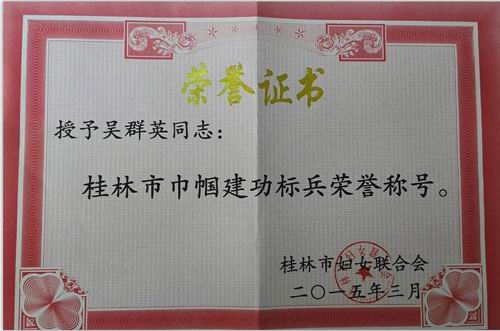 荣誉证书
授予吴群英同志：
桂林市巾帼建功标兵荣誉称号。
桂林市妇女联合会
二〇一五年三月